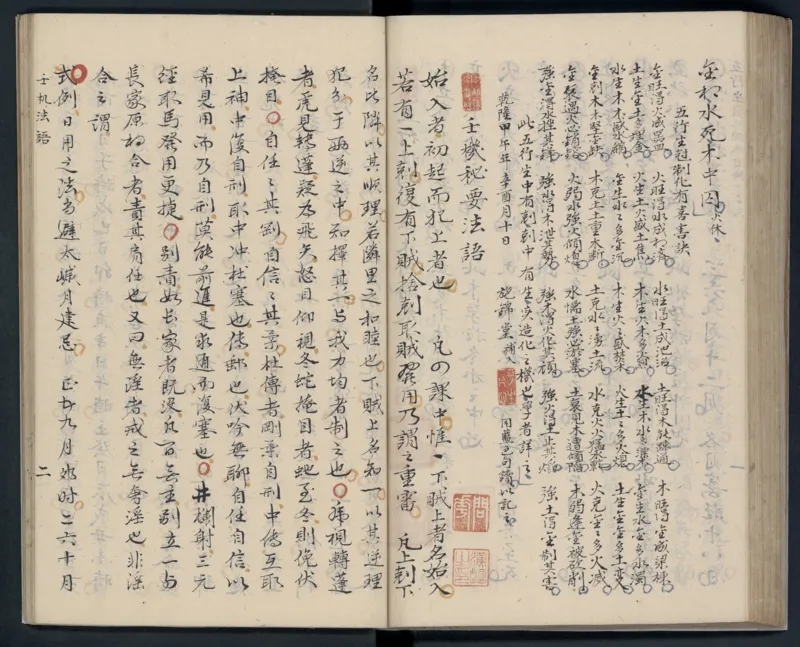 金相水死木中囚火休
五行生剋制化有善害訣
金旺得火成器皿　火旺得水成相濟　水旺得土成池沼　土旺得木能疏通　木旺得金成梁棟
水生木木盛水縮　金生水水多金沉　木生火火多木焚　火生土土多火熄　土生金金多土變
金剋木木堅金缺　木克土土重木折　土克水水湧土流　水克火火猛水乾　火克金金多火滅
金衰遇火必銷鎔　火弱水強火傾熄　水懦土強必淤塞　土衰見木遭傾陷　木弱逢金被砍削
強金得水挫其鋒　強水得木泄其勢　強木得火化其頑　強火得土止其焰　強土得金制其害
此五行生中有剋剋中有生實造化之機也學者詳之
乾隆甲午年辛酉月十日　施端堂補入　用藍色句讀以記之
壬機秘要法語
始入者初起而犯上者也　凡四課中惟一下賊上者名始入
若有一上剋復有下賊捨剋取賊發用乃謂之重審　凡上剋下
名比隣以其順理若隣里之和睦也下賊上名知一以其逆理
犯分于兩逆之中知擇其與我力均者制之也虎視轉蓬
者虎見轉蓬疑為飛矢怒目仰視冬蛇掩目者蛇至冬則俛伏
掩目自任任其剛自信信其柔杜傳者剛柔自刑中傳互取
上神中復自刑取中冲杜塞也傳郵也伏吟無聊自任自信以
希見用而乃自刑莫能前進是求通而復塞也井欄射三元
經取馬發用更捷別責如長家者既沒凡百無主別立一與
長家原相合者責其為任也又曰無淫者戒之無奪淫也非淫
合之謂
式例日用之法當避太歲月建忌正五九月卯時二六十月
壬机法語　二